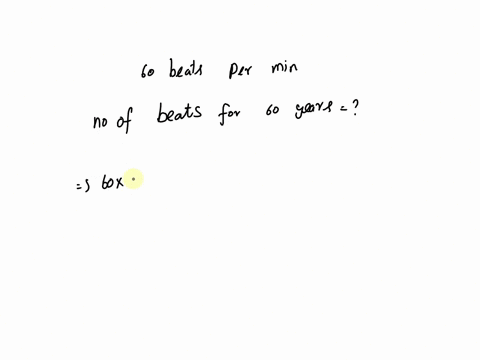 60 beats per min
no of beats for 60 years = ?
=> 60x